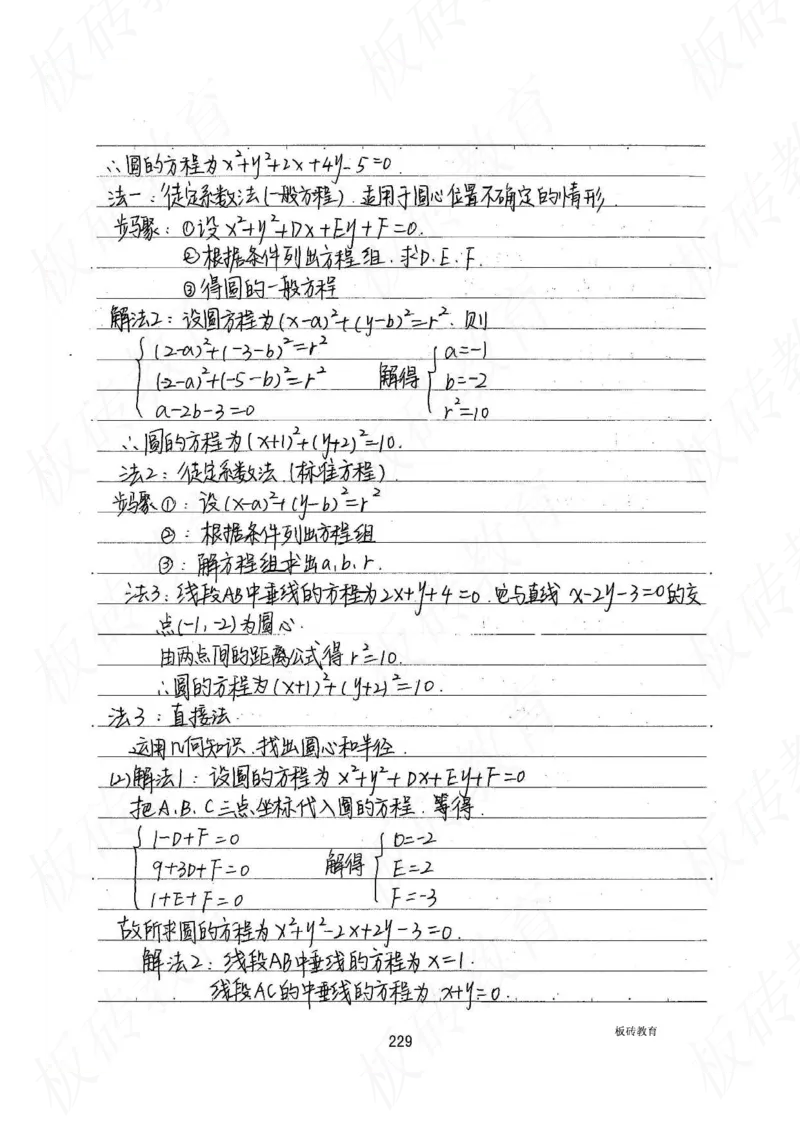 ∴圆的方程为x²+y²+2x+4y-5=0
法一:待定系数法(一般方程).适用于圆心位置不确定的情形
步骤:①设x²+y²+Dx+Ey+F=0.
②根据条件列出方程组.求D.E.F.
③得圆的一般方程
解法2:设圆方程为(x-a)²+(y-b)²=r².则
{(2-a)²+(-3-b)²=r² {a=-1
(-2-a)²+(-5-b)²=r² 解得 b=-2
a-2b-3=0 r²=10
∴圆的方程为(x+1)²+(y+2)²=10.
法2:待定系数法(标准方程)
步骤①:设(x-a)²+(y-b)²=r²
②:根据条件列出方程组
③:解方程组求出a,b,r.
法3:线段AB中垂线的方程为2x+y+4=0.它与直线 x-2y-3=0的交
点(-1,-2)为圆心.
由两点间的距离公式得r²=10.
∴圆的方程为(x+1)²+(y+2)²=10.
法3:直接法
运用几何知识.找出圆心和半径.
(2)解法1:设圆的方程为x²+y²+Dx+Ey+F=0
把A.B.C三点坐标代入圆的方程.等得.
{1-D+F=0 {D=-2
9+3D+F=0 解得 E=2
1+E+F=0 F=-3
故所求圆的方程为x²+y²-2x+2y-3=0.
解法2:线段AB中垂线的方程为x=1.
线段AC的中垂线的方程为x+y=0.
板砖教育
229